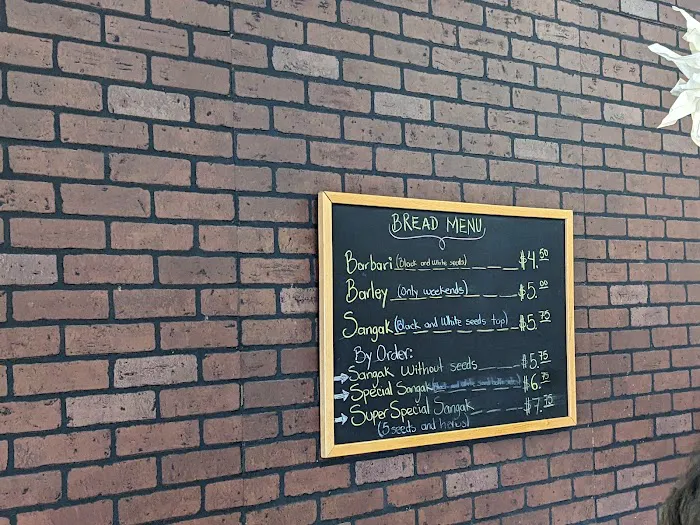 BREAD MENU
Barbari (Black and White seeds) $4.50
Barley (Only weekends) $5.00
Sangak (Black and White seeds top) $5.75
By Order:
→ Sangak Without seeds $5.75
→ Special Sangak (Black and White seeds both sides) $6.75
→ Super Special Sangak $7.75
(5 seeds and herbs)